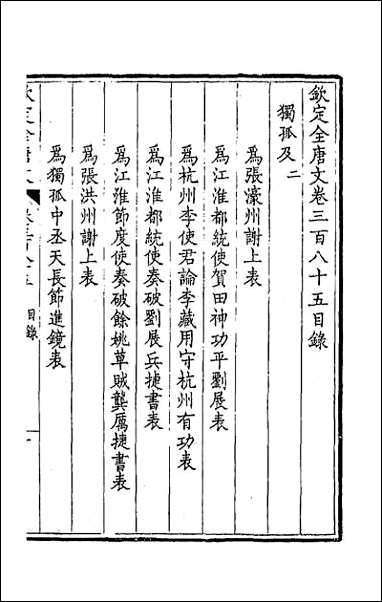 欽定全唐文卷三百八十五目錄
獨孤及二
為張濠州謝上表
為江淮都統使賀田神功平劉展表
為杭州李使君論李藏用守杭州有功表
為江淮都統使奏破劉展兵捷書表
為江淮節度使奏破餘姚草賊龔厲捷書表
為張洪州謝上表
為獨孤中丞天長節進鏡表
欽定全唐文
目錄
一